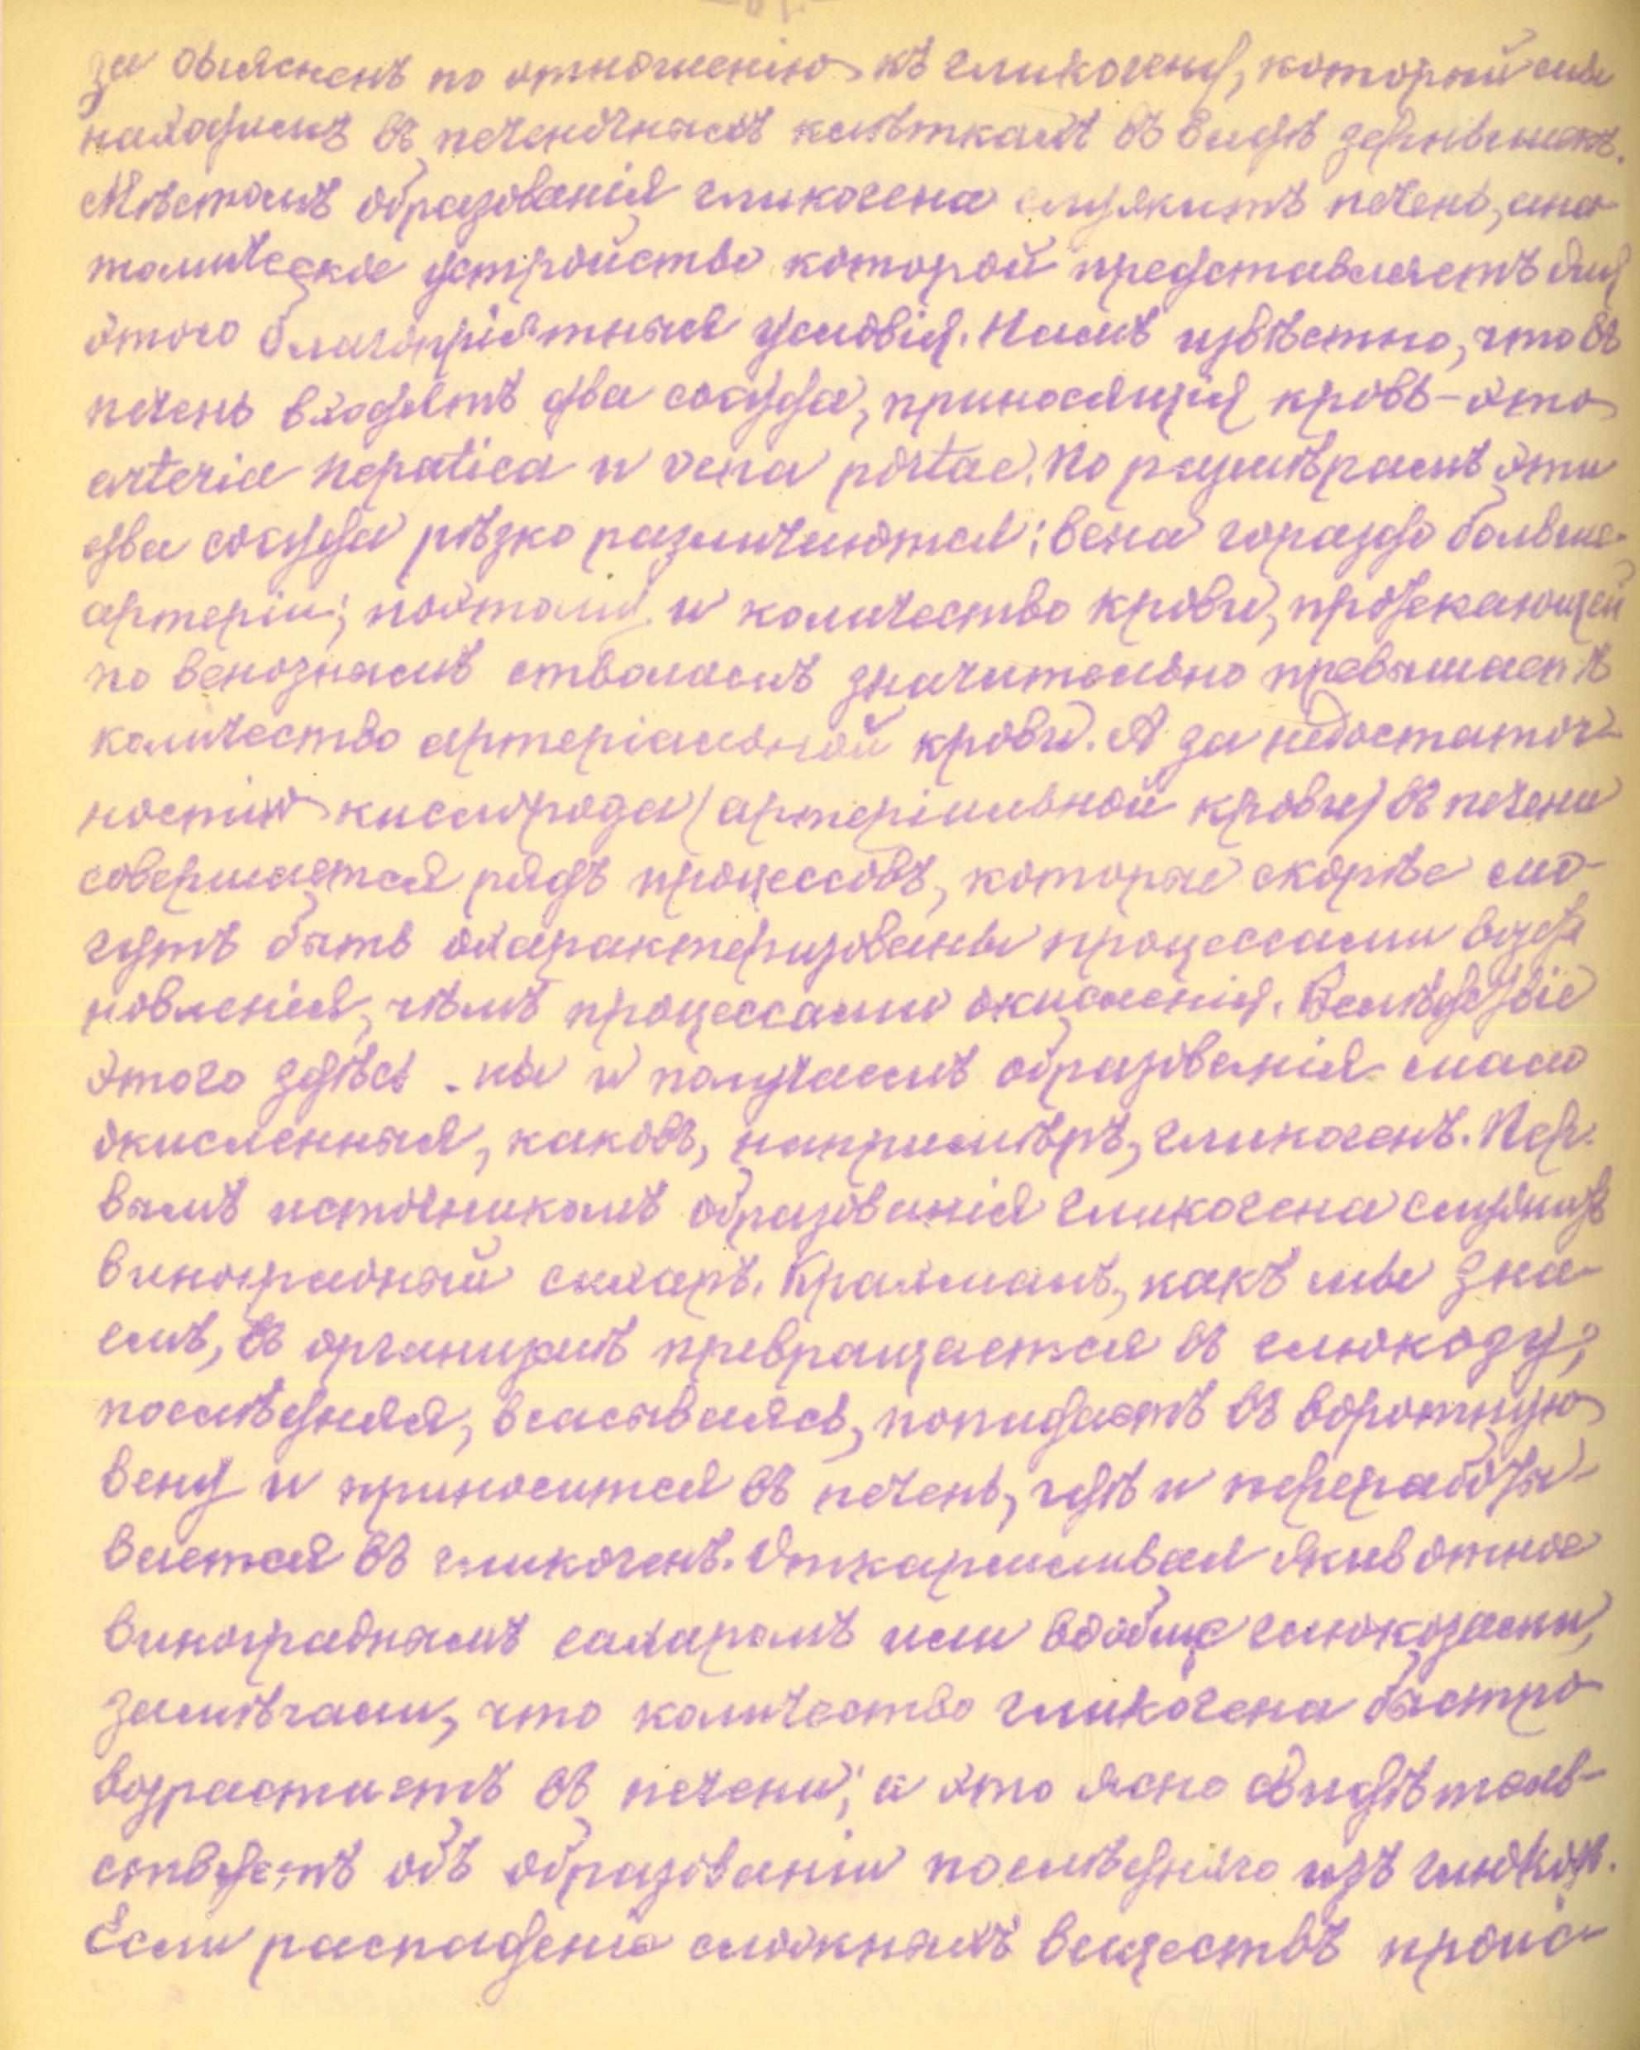 за выясненъ по отношенію къ гликогену, который мы
находимъ въ печеночныхъ клѣткахъ въ видѣ зернышекъ.
Мѣстомъ образованія гликогена служитъ печень, ана-
томическое устройство которой представляетъ для
этого благопріятныя условія. Намъ извѣстно, что въ
печень входятъ два сосуда, приносящія кровь - это
arteria hepatica и vena portae. По размѣрамъ эти
два сосуда рѣзко различаются; вена гораздо больше
артеріи; поэтому и количество крови, протекающей
по венознымъ стволамъ значительно превышаетъ
количество артеріальной крови. А за недостаточ-
ностью кислорода (артеріальной крови) въ печени
совершается рядъ процессовъ, которые скорѣе мо-
гутъ быть охарактеризованы процессами возста-
новленія, чѣмъ процессами окисленія. Вслѣдствіе
этого здѣсь мы и получаемъ образованія мало
окисленныя, каковъ, напримѣръ, гликогенъ. Пер-
вымъ источникомъ образованія гликогена служитъ
виноградный сахаръ. Крахмалъ, какъ мы зна-
емъ, въ организмѣ превращается въ глюкозу;
послѣдняя, всасываясь, попадаетъ въ воротную
вену и приносится въ печень, гдѣ и перерабаты-
вается въ гликогенъ. Откармливая животное
винограднымъ сахаромъ или вообще глюкозами,
замѣчали, что количество гликогена быстро
возрастаетъ въ печени; а это ясно свидѣтель-
ствуетъ объ образованіи послѣдняго изъ глюкозъ.
Если распаденіе сложныхъ веществъ проис-